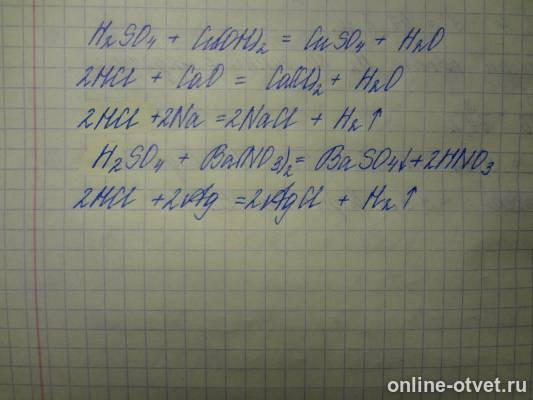 H₂SO₄ + Cu(OH)₂ = CuSO₄ + H₂O
2HCl + CaO = CaCl₂ + H₂O
2HCl + 2Na = 2NaCl + H₂↑
H₂SO₄ + Ba(NO₃)₂ = BaSO₄↓ + 2HNO₃
2HCl + 2Ag = 2AgCl + H₂↑
online-otvet.ru